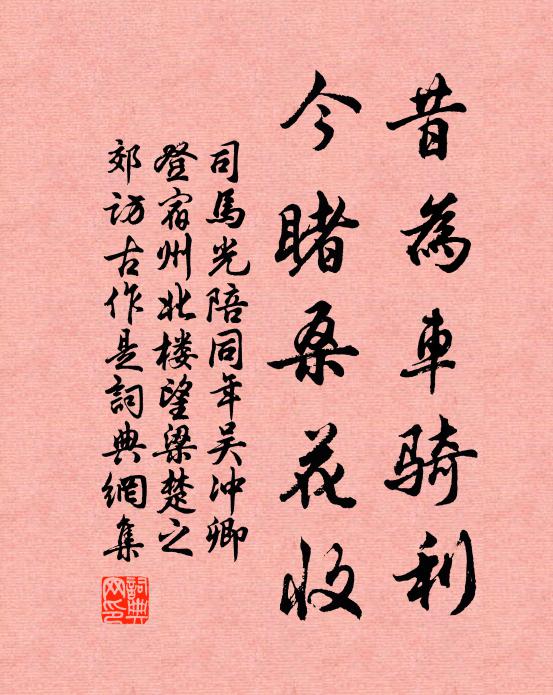 昔為車騎利
今睹桑花收
司馬光陪同年吴冲卿
登宿州北楼望梁楚之
郊访古作是詞典網集
詞典網印